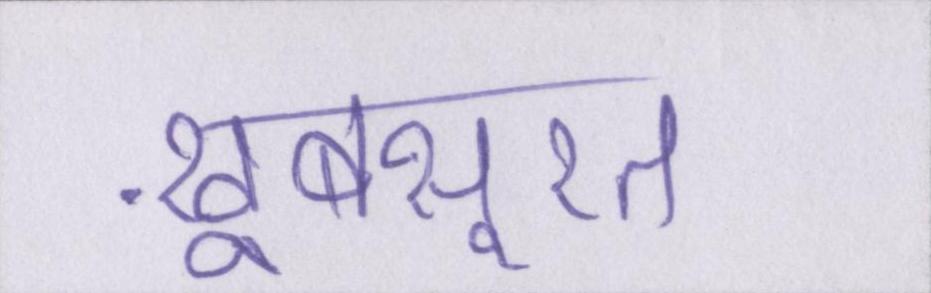 ख़ूबसूरत